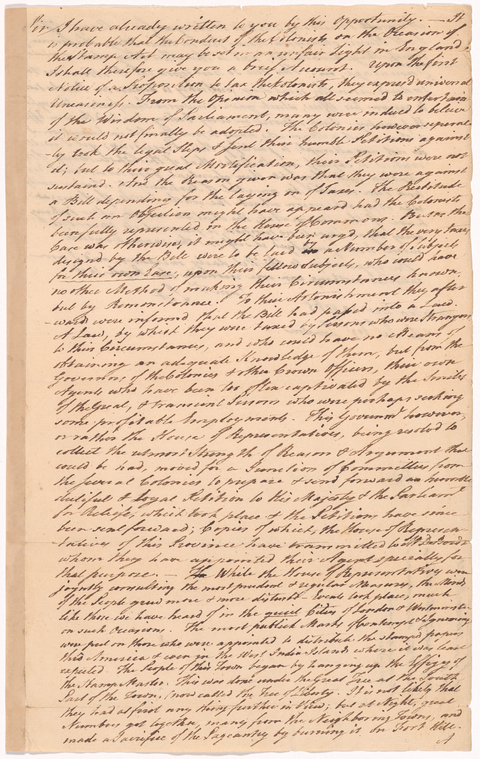 Sir, I have already written to you by this Opportunity. — It
is probable that the Conduct of the Colonists on the Occasion of
the Stamp Act may be set in an unfair Light in England;
I shall therefore give you a brief Account. Upon the first
Notice of a Proposition to tax the Colonists, they expressd universal
Uneasiness. From the Opinion which all seemed to entertain
of the Wisdom of Parliament, many were induced to believe
it would not finally be adopted. The Colonies however several
ly took the legal Steps & sent their humble Petitions against
it; but to their great Mortification, their Petitions were not
sustaind. And the Reason given was that they were against
a Bill depending for the laying on of Taxes. The Rectitude
of such an Objection might have appeard had the Colonists
been fully represented in the House of Commons. But as the
Case was otherwise, it might have been urgd, that the very Taxes
designd by the Bill were to be laid by a Number of Subjects
for their own Ease, upon their fellow Subjects, who could have
no other Method of making their Circumstances known,
but by Remonstrance. To their Astonishment they after
ward were informd that the Bill had passd into a Law:
A Law, by which they were taxed by Persons, who were Strangers
to their Circumstances, and who could have no Means of
obtaining an adequate Knowledge of them, but from the
Governors of the Colonies & other Crown Officers, their own
Agents who have been too often captivated by the Smiles
of the Great, & transient Persons who were perhaps seeking
some profitable Employments. This Governmt however,
or rather the House of Representatives, being resolvd to
collect the utmost Strength of Reason & Argument that
could be had, moved for a Junction of Committees from
the several Colonies to prepare & send forward an humble
dutiful & Loyal Petition to His Majesty & the Parliamt
for Relief; which took place & the Petitions have since
been sent forward; Copies of which, the House of Represen-
tatives of this Province have transmitted to
whom they have appointed their Agent specially for
that purpose. — While the House of Representatives were
joyntly consulting the most prudent & regular Measures, the Minds
of the People grew more & more disturbd. Events took place, much
like those we have heard of in the quiet Cities of London & Westminster
on such Occasions. The most publick Marks of Contempt & Ignominy
were put on those who were appointed to distribute the stampd papers
thro America & even in the West India Islands where it was least
expected. The People of this Town began by hanging up the Effigies of
the Stamp Master. This was done under the Great Tree at the South
Part of the Town, (now called the Tree of Liberty. It is not likely that
they had at first any thing further in View; but at Night, great
Numbers got together, many from the Neighboring Towns, and
made a Sacrifice of the Pageantry by burning it on Fort Hill.